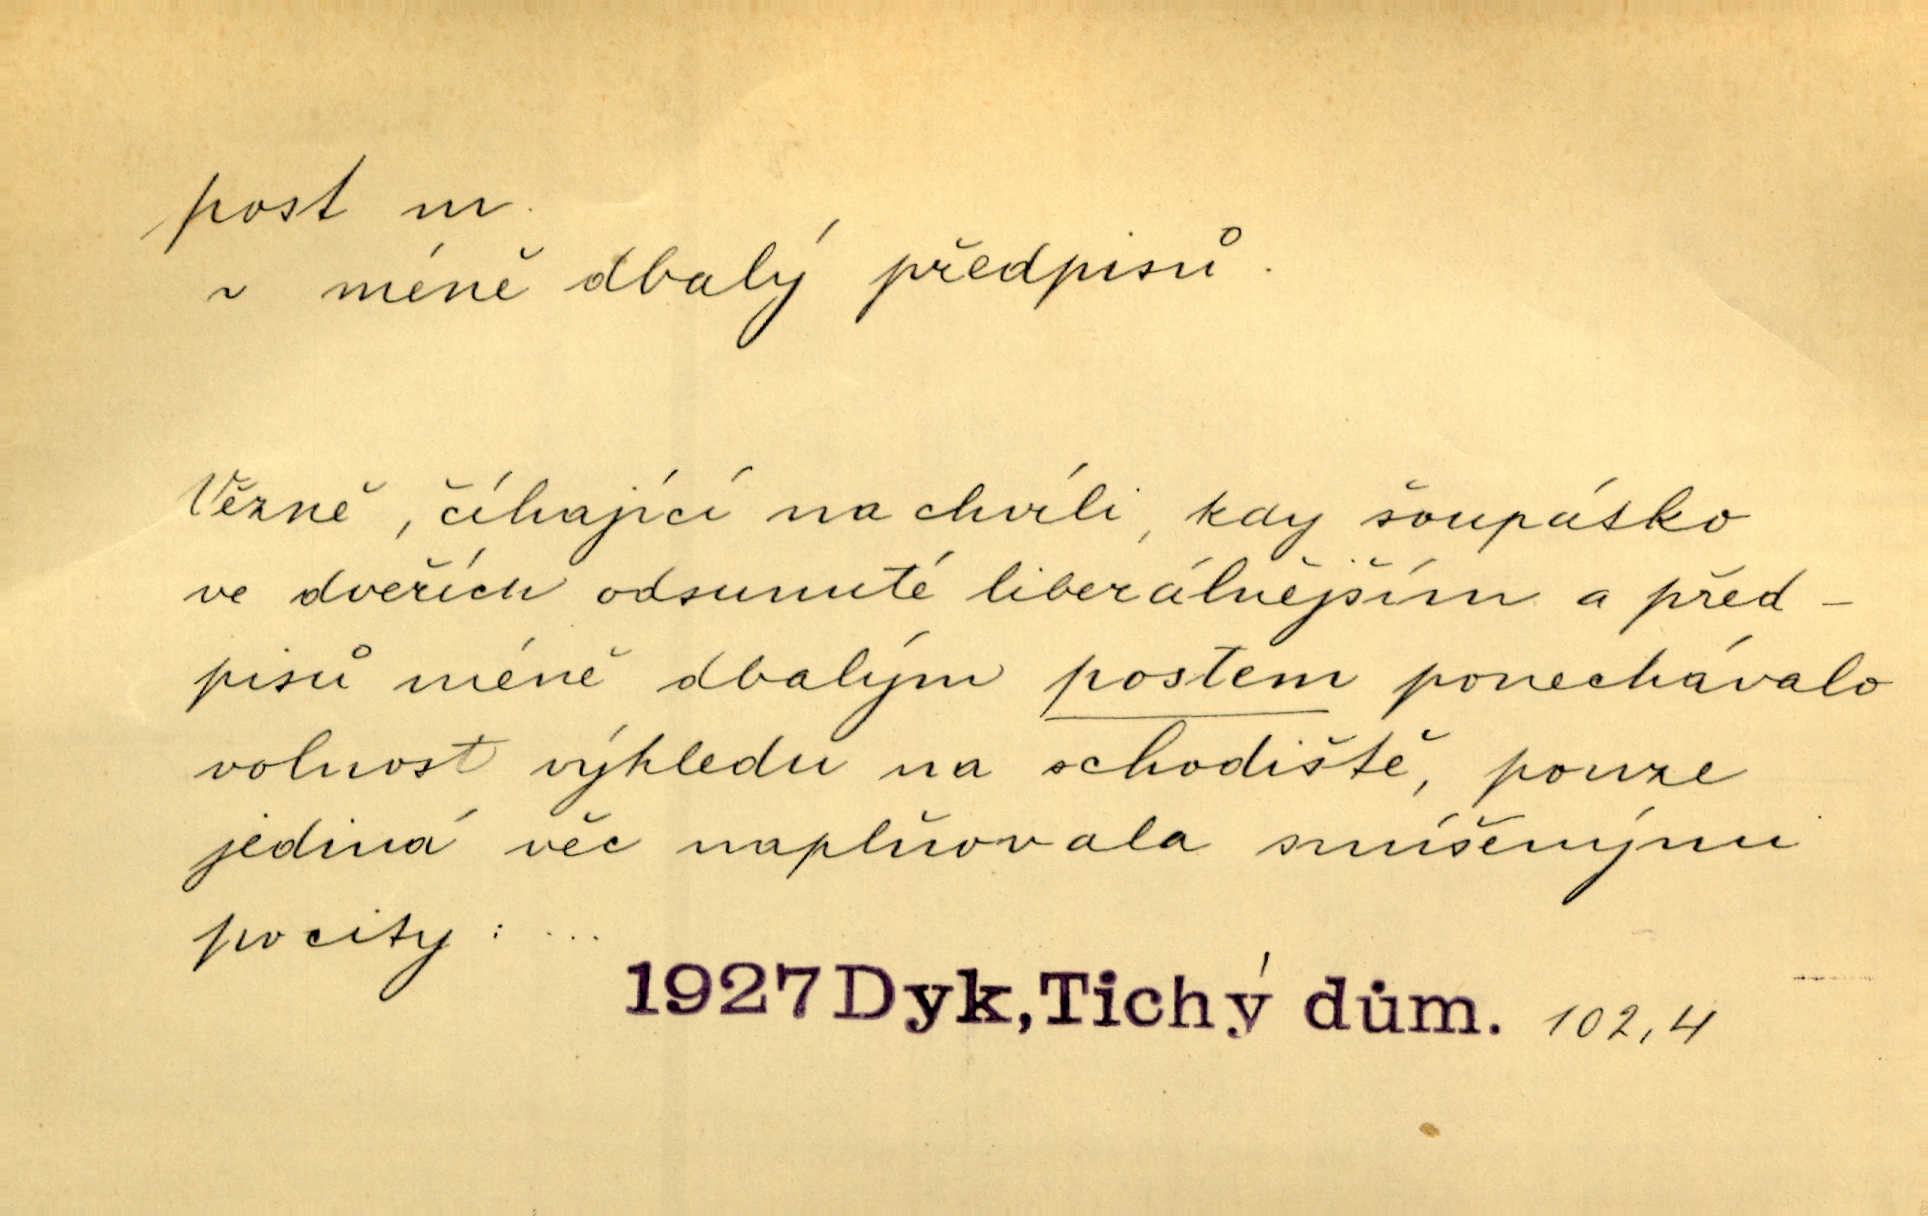 post m.
~ méně dbalý předpisů.
Vězně, číhající na chvíli, kdy šoupátko
ve dveřích odsunuté liberálnějším a před-
pisů méně dbalým postem ponechávalo
volnost výhledu na schodiště, pouze
jediná věc naplňovala smíšenými
pocity: ...
1927 Dyk, Tichý dům. 102,4